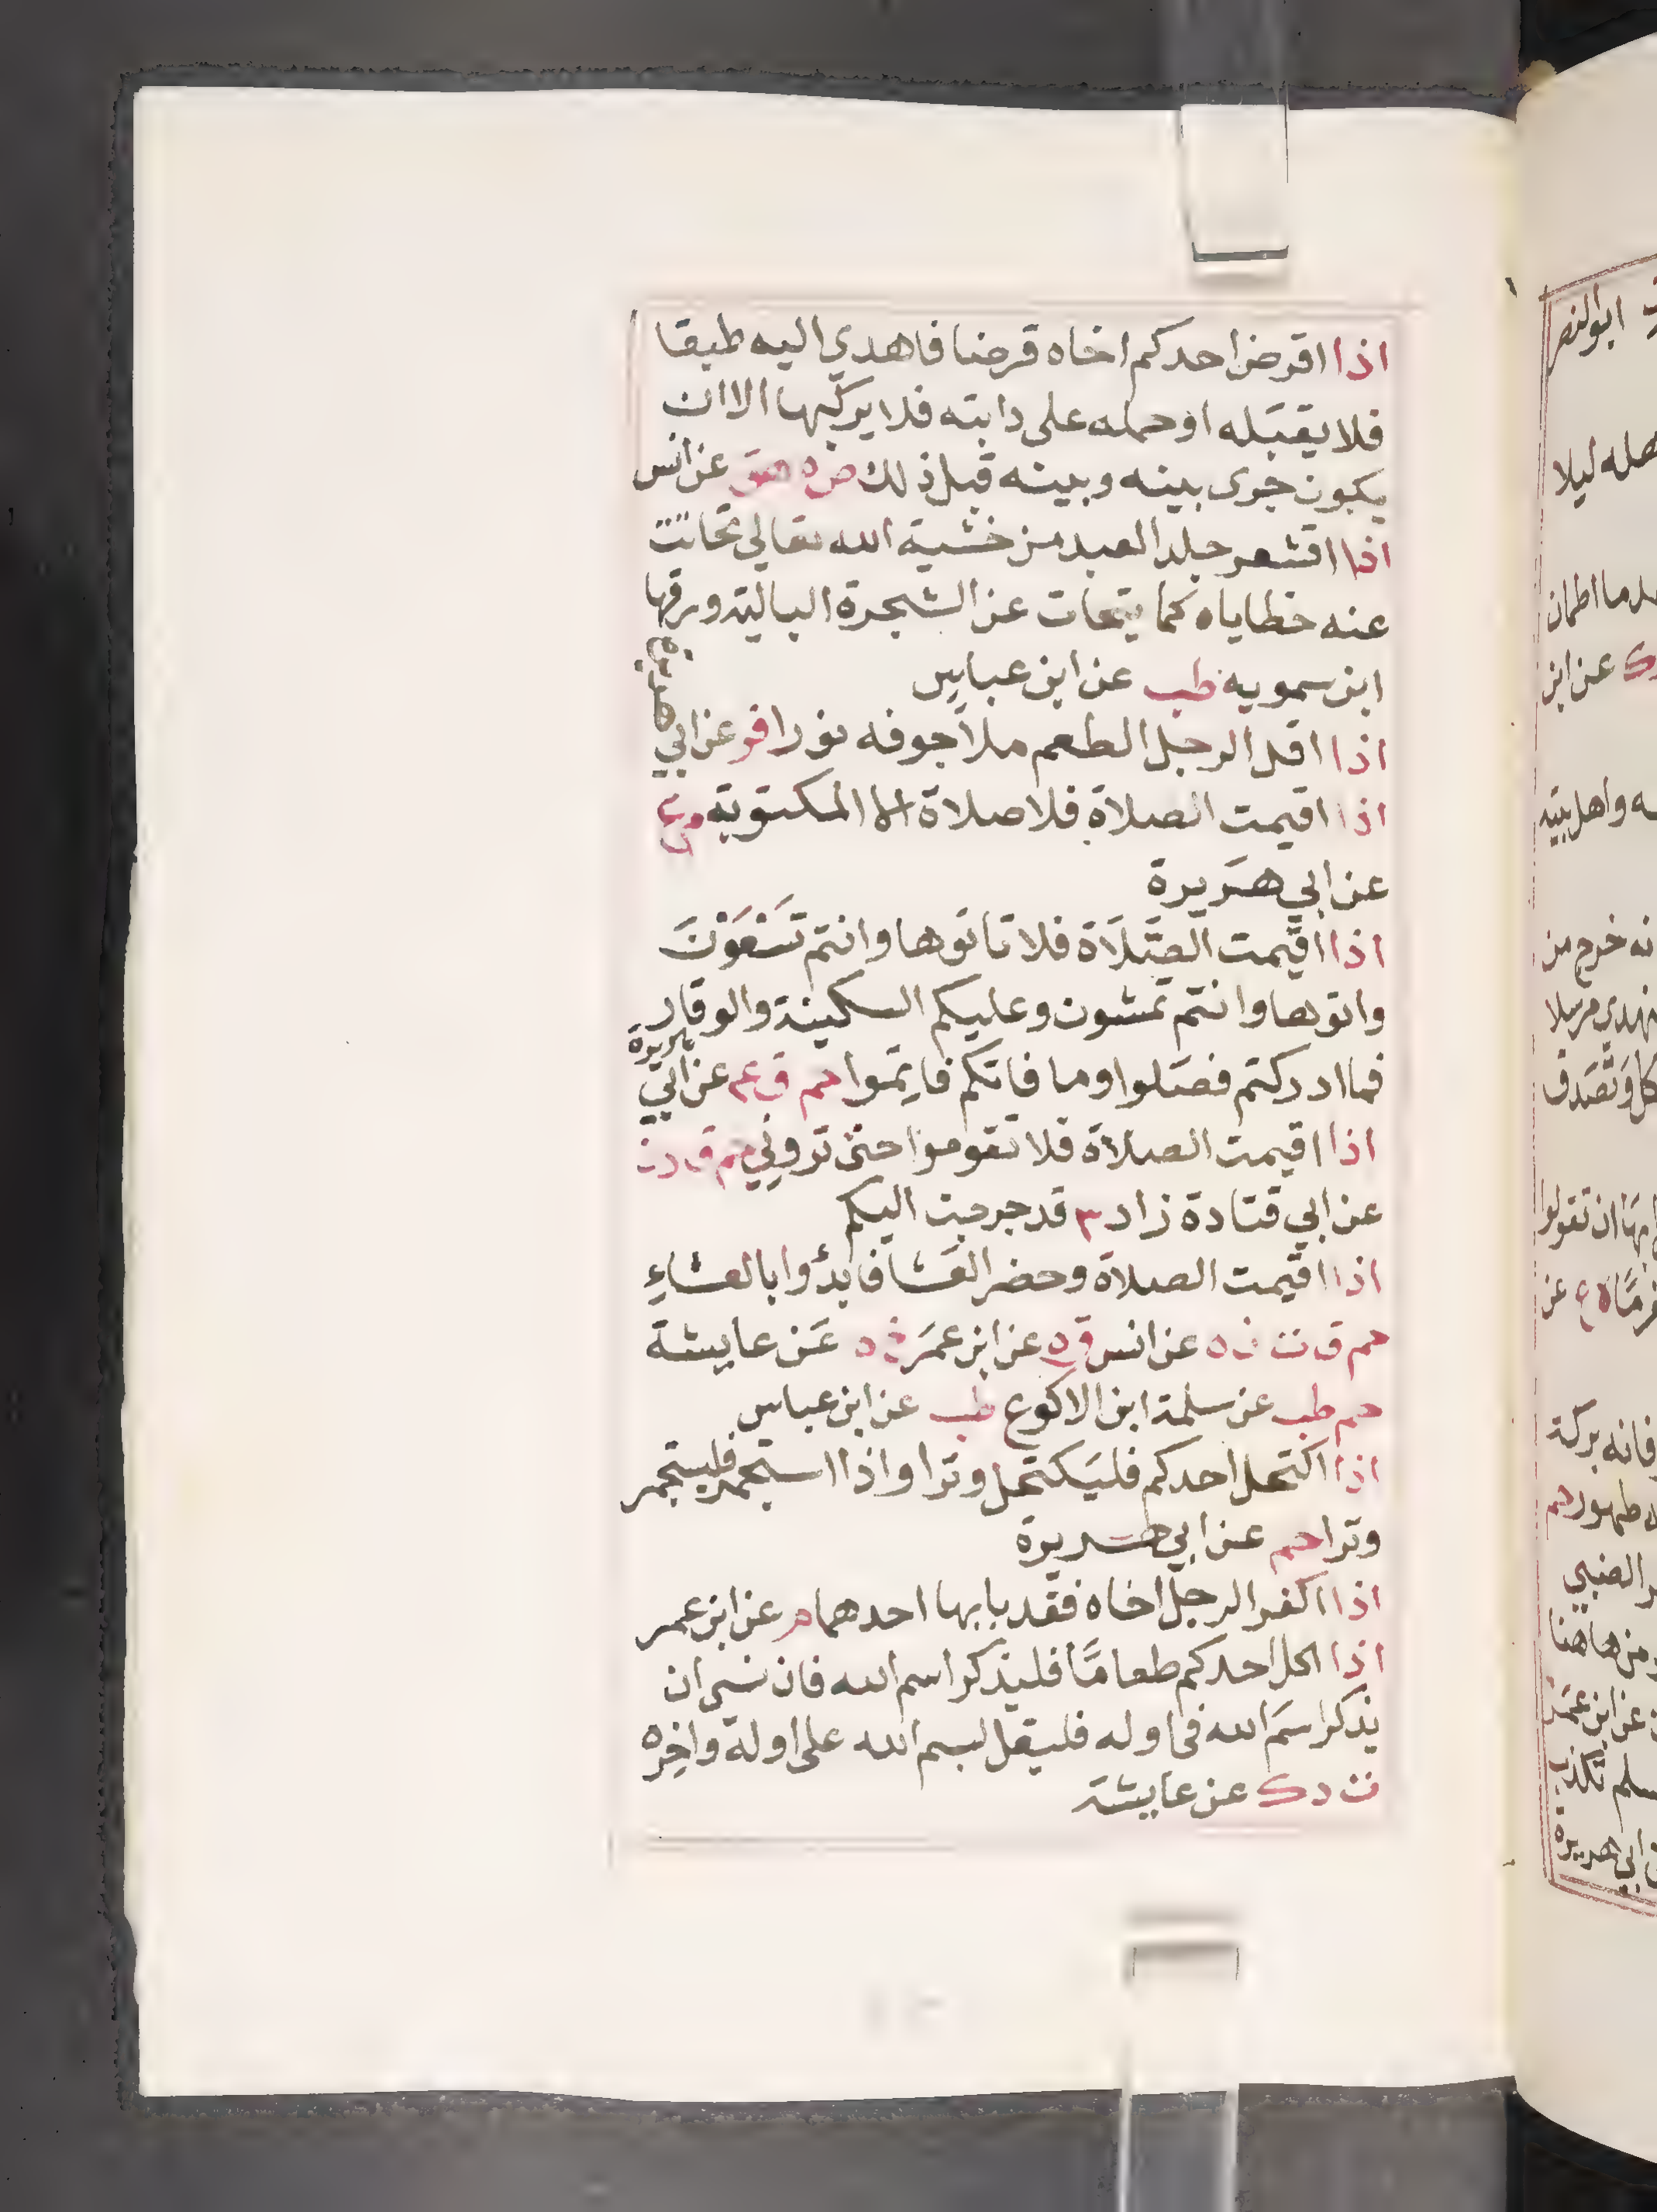 اذا اقرض احدكم اخاه قرضا فاهدي اليه طبقا
فلا يقبَله او حمله على دابته فلا يركبها الا ان
يكون جرى بينه وبينه قبل ذلك ص ه هق عن انس
اذا اقشعر جلد العبد من خشية الله تعالي تحاتت
عنه خطاياه كما يتحات عن الشجرة البالية ورقها
ابن سمويه طب عن ابن عباس
اذا اقل الرجل الطعم ملأ جوفه نورا فر عن ابي
اذا اقيمت الصلاة فلا صلاة الا المكتوبة م ع
عن ابي هَريرة
اذا اقيمت الصَّلَاة فلا تاتوها وانتم تَسْعَوْنَ
واتوها وانتم تمشون وعليكم السكينة والوقار
فما ادركتم فصَلوا وما فاتكم فاتِموا حم ق ع عن ابي هريرة
اذا اقيمت الصلاة فلا تقوموا حتى تروني حم ق د ن
عن ابي قتادة زاد ٣ قد خرجت اليكم
اذا اقيمت الصلاة وحضر العَشا فابدؤا بالعشاءِ
حم ق ت ن ه عن انس ق ه عن ابن عمَر خ ه عَن عايشة
حم طب عن سلمة ابن الاكوع طب عن ابن عباس
اذا اكتحل احدكم فليَكتحل وترا واذا استجمر فليستجمر
وترا حم عن ابي هريرة
اذا اكفر الرجل اخاه فقد بابها احدهما م عن ابن عمر
اذا اكل احدكم طعامًا فليذكر اسم الله فان نسي ان
يذكر اسمَ الله في اوله فليقل بسم الله على اوله واخِره
ت د ك عن عايشة
ابوالنصر
هله ليلا
ما اطمان
ك عن ابن
ه واهل بيته
نه خرج من
مرسلا
كل وتَصَدق
ان تقولوا
عن
فانه بركة
طهور حم
الضبي
من هاهنا
عن ابن عمَر
ابي هريرة